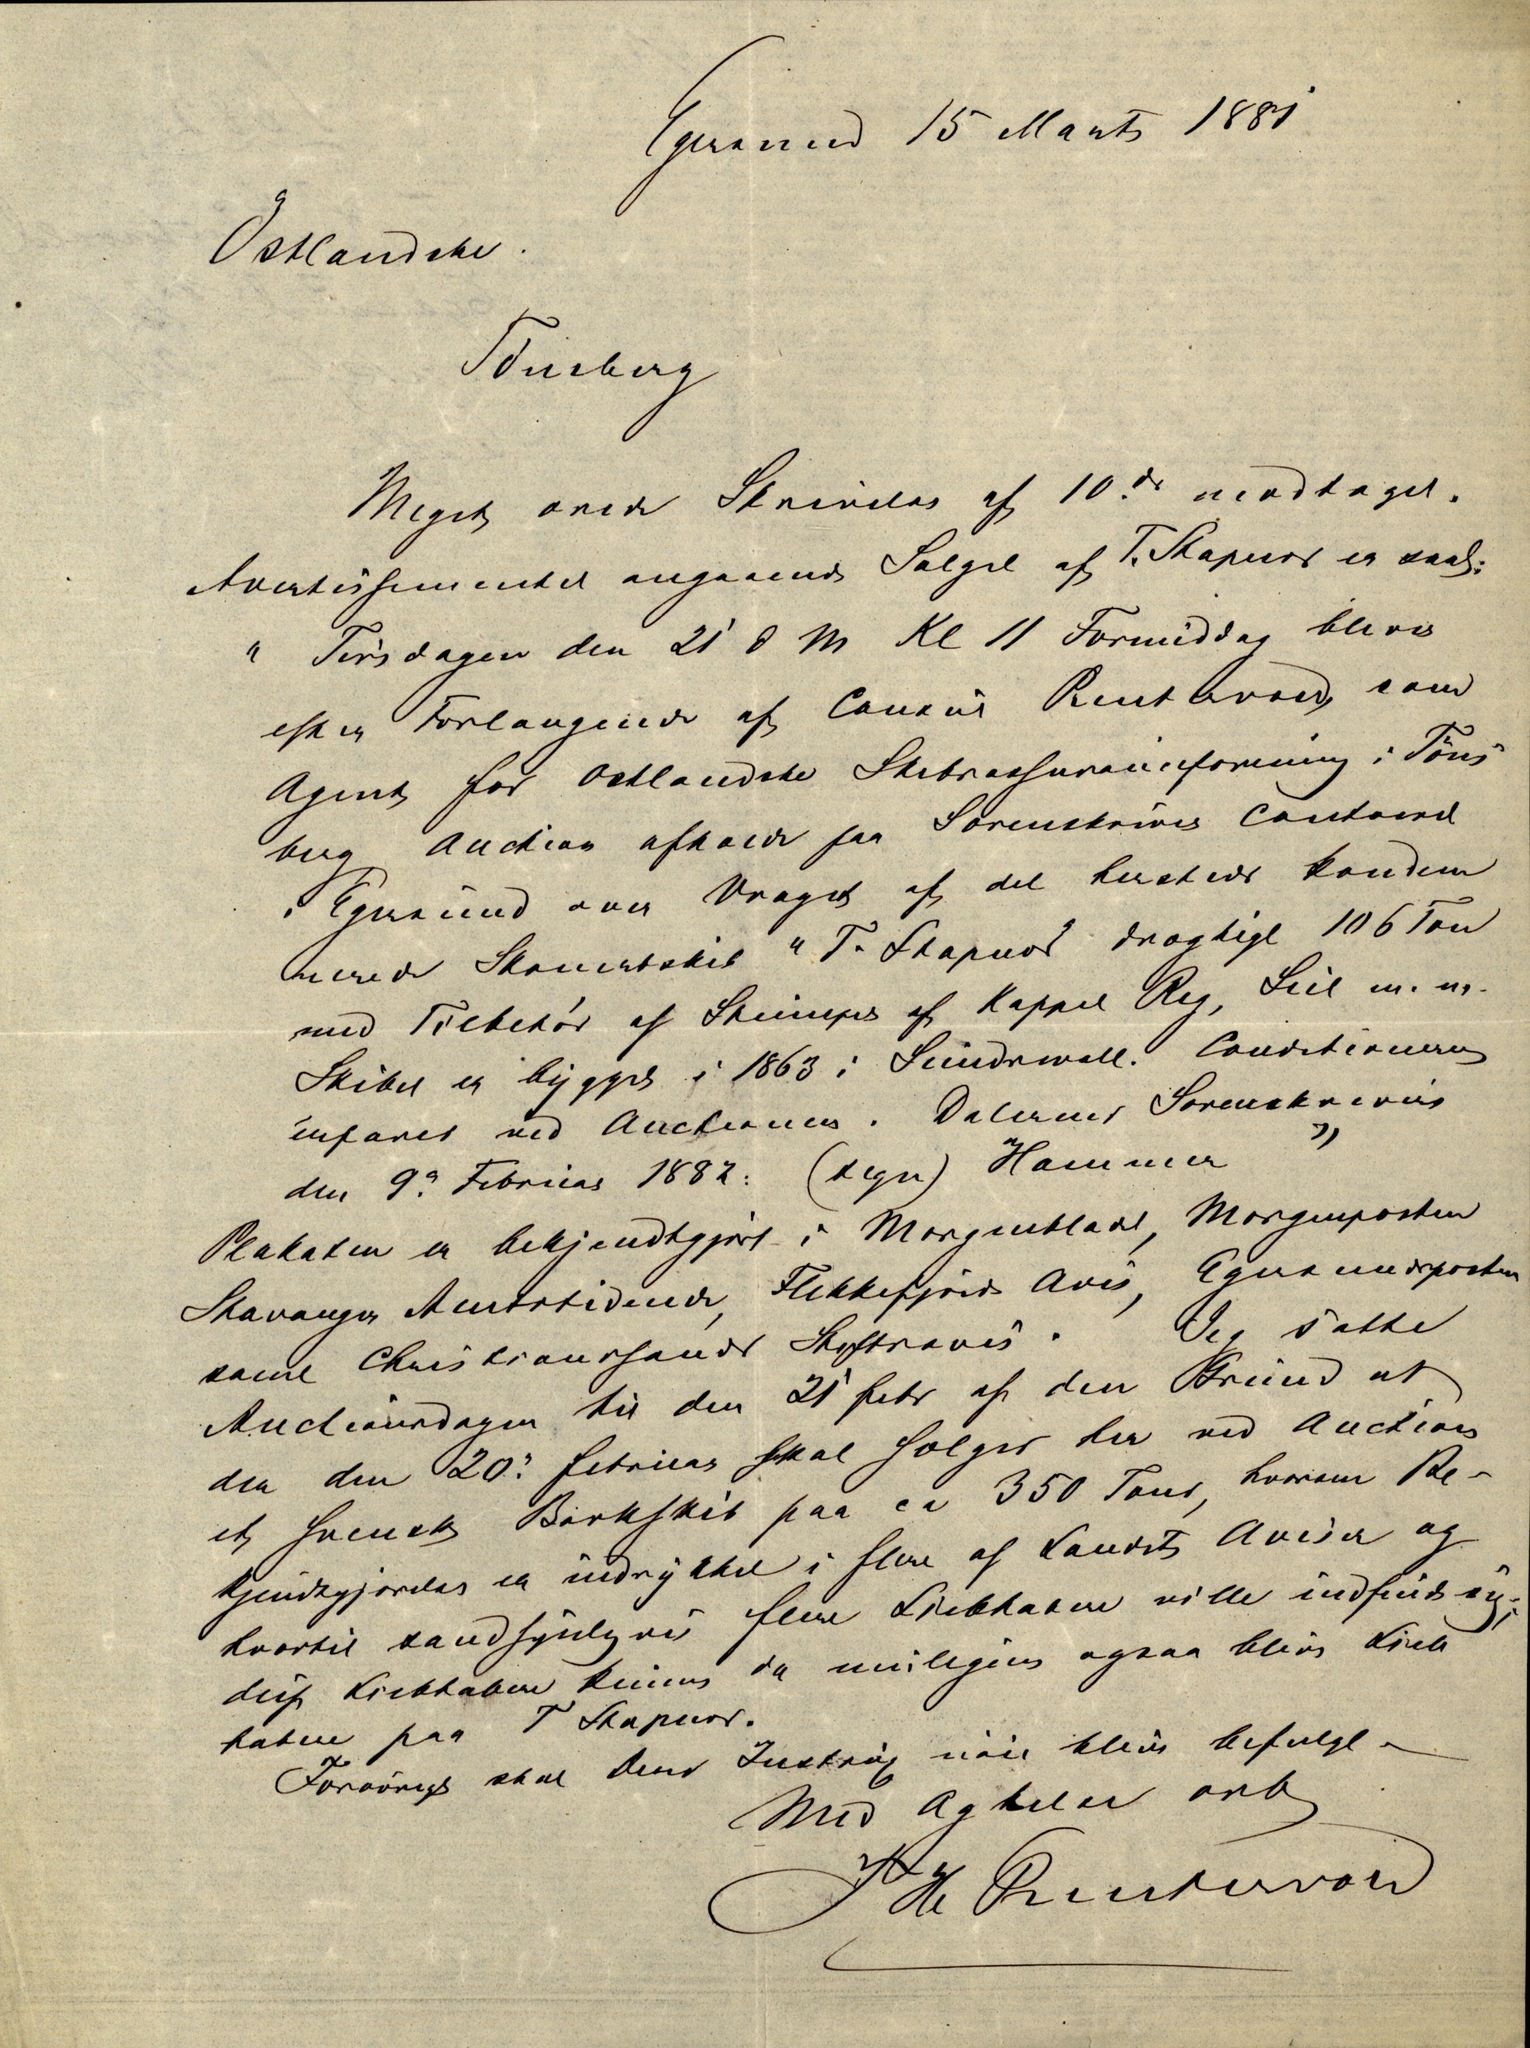 Egersund 15 Marts 1881
Östlandske.
Tönsberg
Meget ærede Skrivelse af 10.de modtaget.
Avertissementet angaaende Salget af T. Stapnes er saal:
" Tirsdagen den 21 d M Kl 11 Formiddag blives
efter Forlangende af Consul Puntervold, som
Agent for Ostlandske Skibsassuranceforening i Töns
berg Auction afholdt paa Sorenskriver Contoiret
i Egersund over Vraget af det hersteds kondem
nerede Skonnertskib " T. Stapnes drægtigt 106 Ton
med Tilbehör af Stumper af Kappet Rig, Seil m. m.
Skibet er bygget i 1863 i Sundswall. Conditionerne
erfares ved Auctionen. Dalernes Sorenskriveri
den 9. Februar 1882: (sign) Hammer "
Plakaten er bekjendtgjort i Morgenbladet, Morgenposten
Stavanger Amtstidende, Flekkefjords Avis, Egersundsposten
samt Christianssands Stiftsavis. Jeg satte
Auctionsdagen til den 21 febr af den Grund at
der den 20. februar skal sælges her ved Auction
et svensk Barkskib paa ca 350 Tons, hvorom Be-
kjendtgjørelse er indrykket i flere af Landets Aviser og
hvortil sandsynligvis flere Liebhavere ville indfinde sig;
disse Liebhavere kunne da muligens ogsaa blive Lieb
havere paa T Stapnes.
Forøvrigt skal Deres Instrux nöie blive befulgt -
Med Agtelse erb
Puntervold